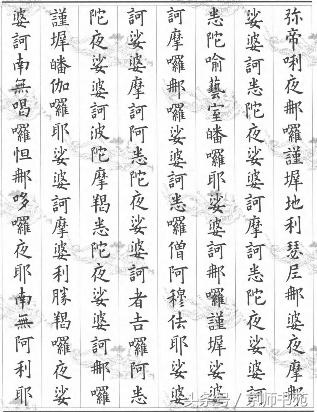 彌帝唎夜那囉謹墀地利瑟尼那婆夜摩那
娑婆訶悉陀夜娑婆訶摩訶悉陀夜娑婆訶
悉陀喻藝室皤囉耶娑婆訶那囉謹墀娑婆
訶摩囉那囉娑婆訶悉囉僧阿穆佉耶娑婆
訶娑婆摩訶阿悉陀夜娑婆訶者吉囉阿悉
陀夜娑婆訶波陀摩羯悉陀夜娑婆訶那囉
謹墀皤伽囉耶娑婆訶摩婆利勝羯囉夜娑
婆訶南無喝囉怛那哆囉夜耶南無阿利耶
头条号 / 京师书苑